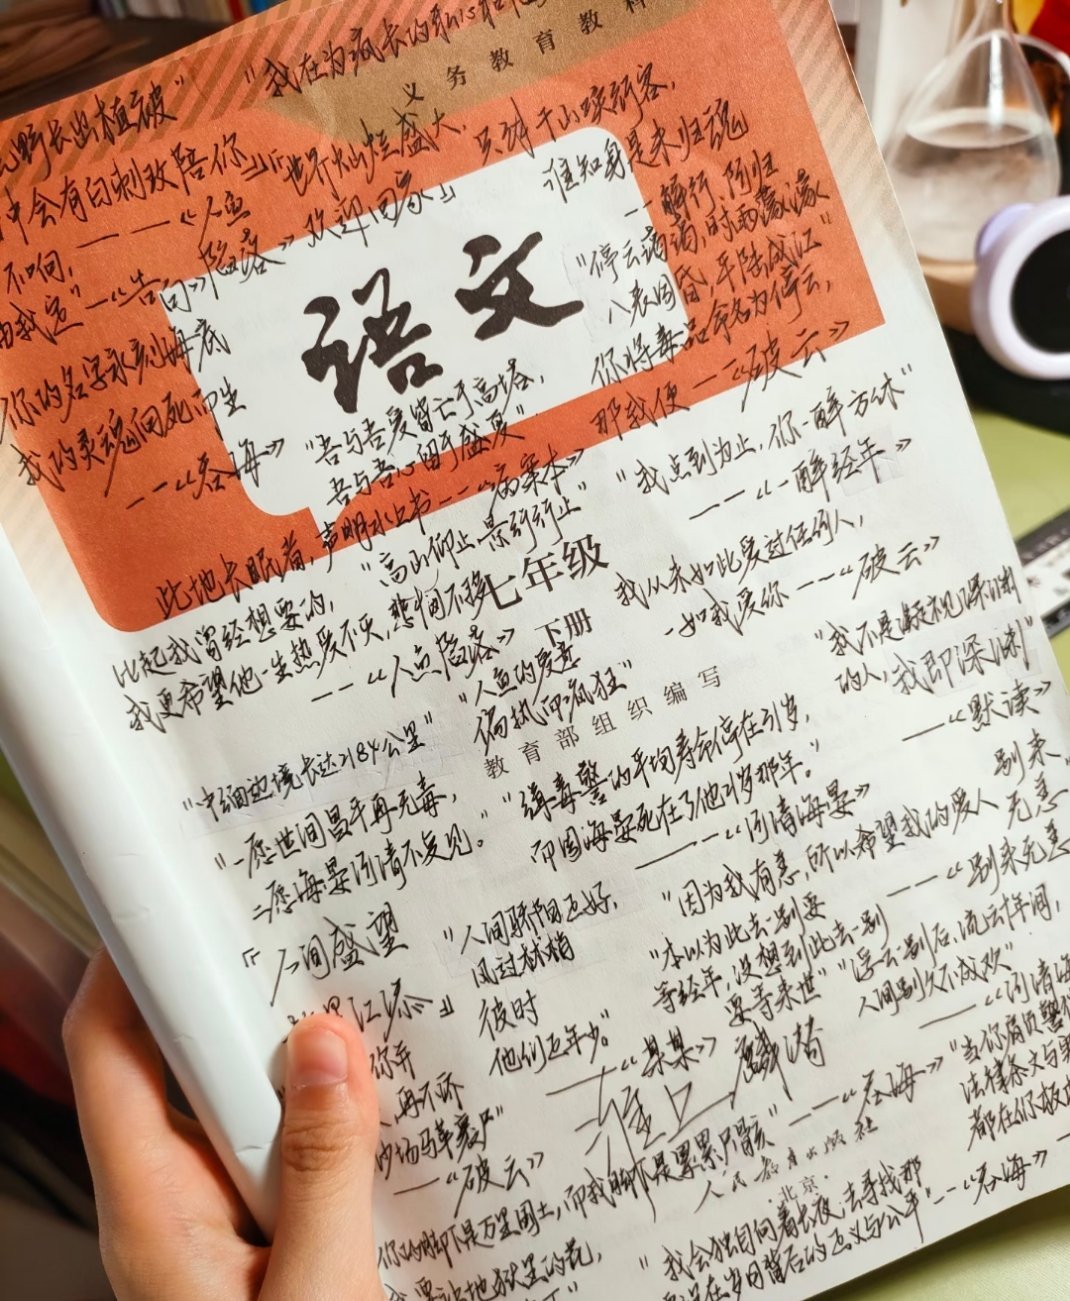 "我在为疯长的
义务教育教科
野长出植被"
中会有白刺玫陪你
世界灿烂盛大,
欢迎回家」
只对千山唤新客,
谁知身是未归魂
——解行、陈归
不响,
——《人鱼陷落》
——《告白》
你的名字永刻海底
我的灵魂向死而生
——《吞海》
语文
"停云霭霭,时雨濛濛
八表同昏,平陆成江"
你将毒品命名为停云,
那我便——《破云》
"吾与吾爱皆亡于高塔,
吾与吾心留于盛夏"
此地长眠者,声明水上书——《病案本》
"我点到为止,你一醉方休"
——《一醉经年》
"高山仰止,景行行止"
七年级
下册
比起我曾经想要的,
我更希望他一生热爱不灭,悲悯不移
——《人鱼陷落》
我从未如此爱过任何人,
一如我爱你——《破云》
"人鱼的爱意
偏执而疯狂"
教育部组织编写
"我不是凝视深渊
的人,我即深渊"
——《默读》
"中缅边境长达2184公里"
"一愿世间昌平再无毒,
二愿海晏河清不复见。"
"缉毒警的平均寿命停在41岁,
——《河清海晏》
别来
无恙
"因为我有恙,所以希望我的爱人
——《别来无恙
『人间盛望
江添』
"人间骄阳正好,
风过林梢
彼时
他们正年少。"
——《某某》
"本以为此去一别要
等经年,没想到此去一别
要等来世"
"浮云一别后,流云十年间,
人间别久不成欢"
——《河清海
你并
人再不济
沙场马革裹尸"
——《破云》
"当你肩负警
法律条文与
都在你
你的脚下是万里国土,而我脚下是累累尸骸"——《吞海》
人民教育出版社
·北京·
要让地狱里的花,
"我会独自向着长夜,去寻找那
岁月背后的正义与公平"——《吞海》